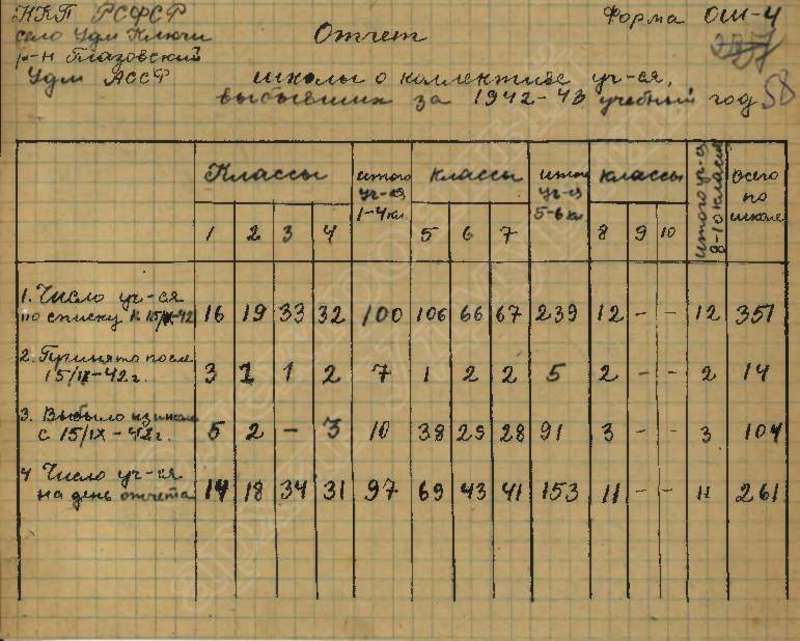 НКП РСФСР Форма ОШ-4
село Удм Ключи Отчет
р-н Глазовский
Удм АССР школы о коллективе уч-ся, 58
выбывших за 1942-43 учебный год
Классы итого уч-ся 1-4 кл. классы итого уч-ся 5-6 кл классы итого уч-ся 8-10 класса Всего по школе
1 2 3 4 5 6 7 8 9 10
1. Число уч-ся
по списку к 15/IX-42 16 19 33 32 100 106 66 67 239 12 - - 12 351
2. Принято после
15/IX-42 г. 3 1 1 2 7 1 2 2 5 2 - - 2 14
3. Выбыло из школ
с 15/IX-42 г. 5 2 - 3 10 38 25 28 91 3 - - 3 104
4 Число уч-ся
на день отчета 14 18 34 31 97 69 43 41 153 11 - - 11 261